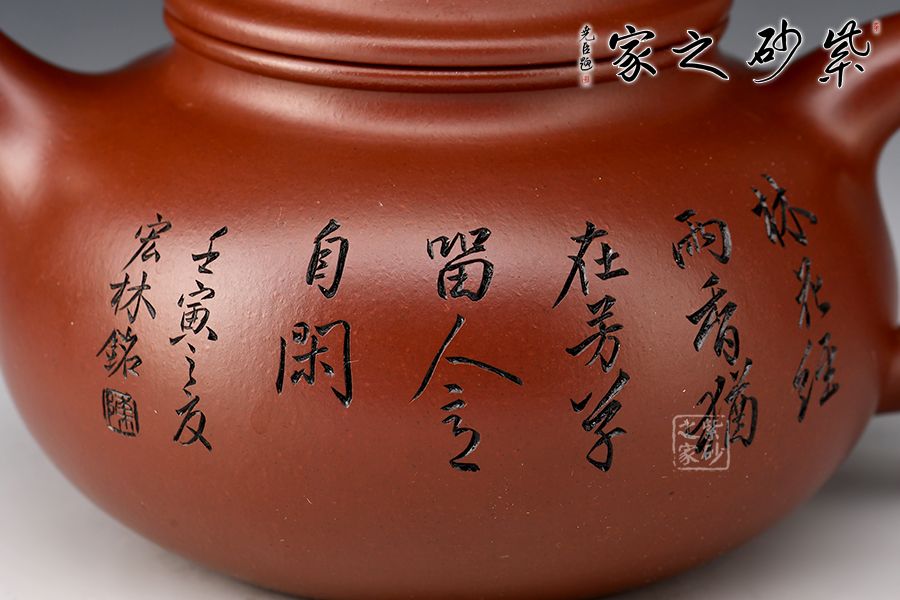 紫砂之家
堯臣題
林花經
雨香猶
在芳草
留人意
自閑
壬寅之夏
宏林銘
紫砂
之家